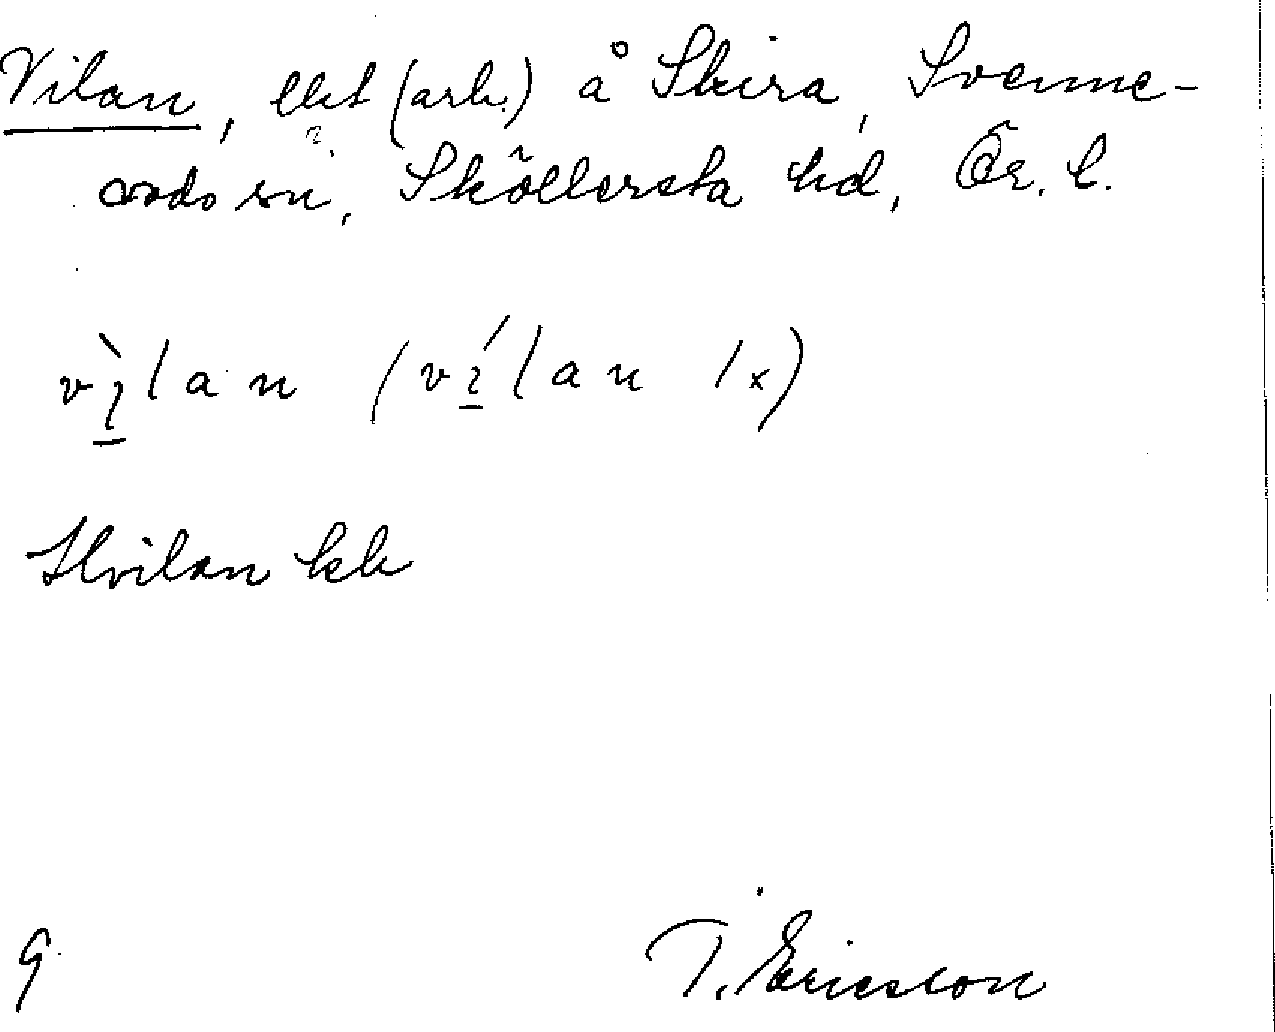 Vilan, lht (arb.) å Skira, Svenne-
vads sn, Sköllersta hd, Ör. l.
vìlan (vílan 1x)
Hvilan kb
9
T. Ericsson